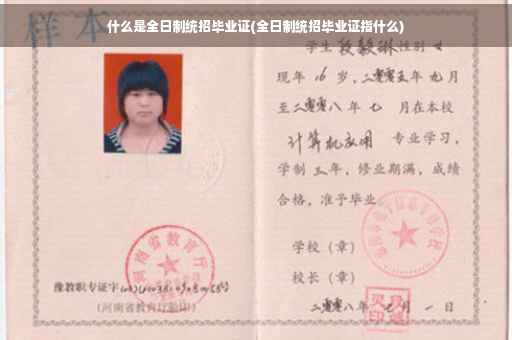 什么是全日制统招毕业证(全日制统招毕业证指什么)
样本
学生 段毅琳 性别 女
现年 16 岁,二零零五年 九月
至二零零八年 七 月在本校
计算机应用 专业学习,
学制 三 年,修业期满,成绩
合格,准予毕业
学校(章)
校长(章)
二零零八年 七 月 一 日
河南省教育厅
豫教职专证字
(河南省教育厅验印)